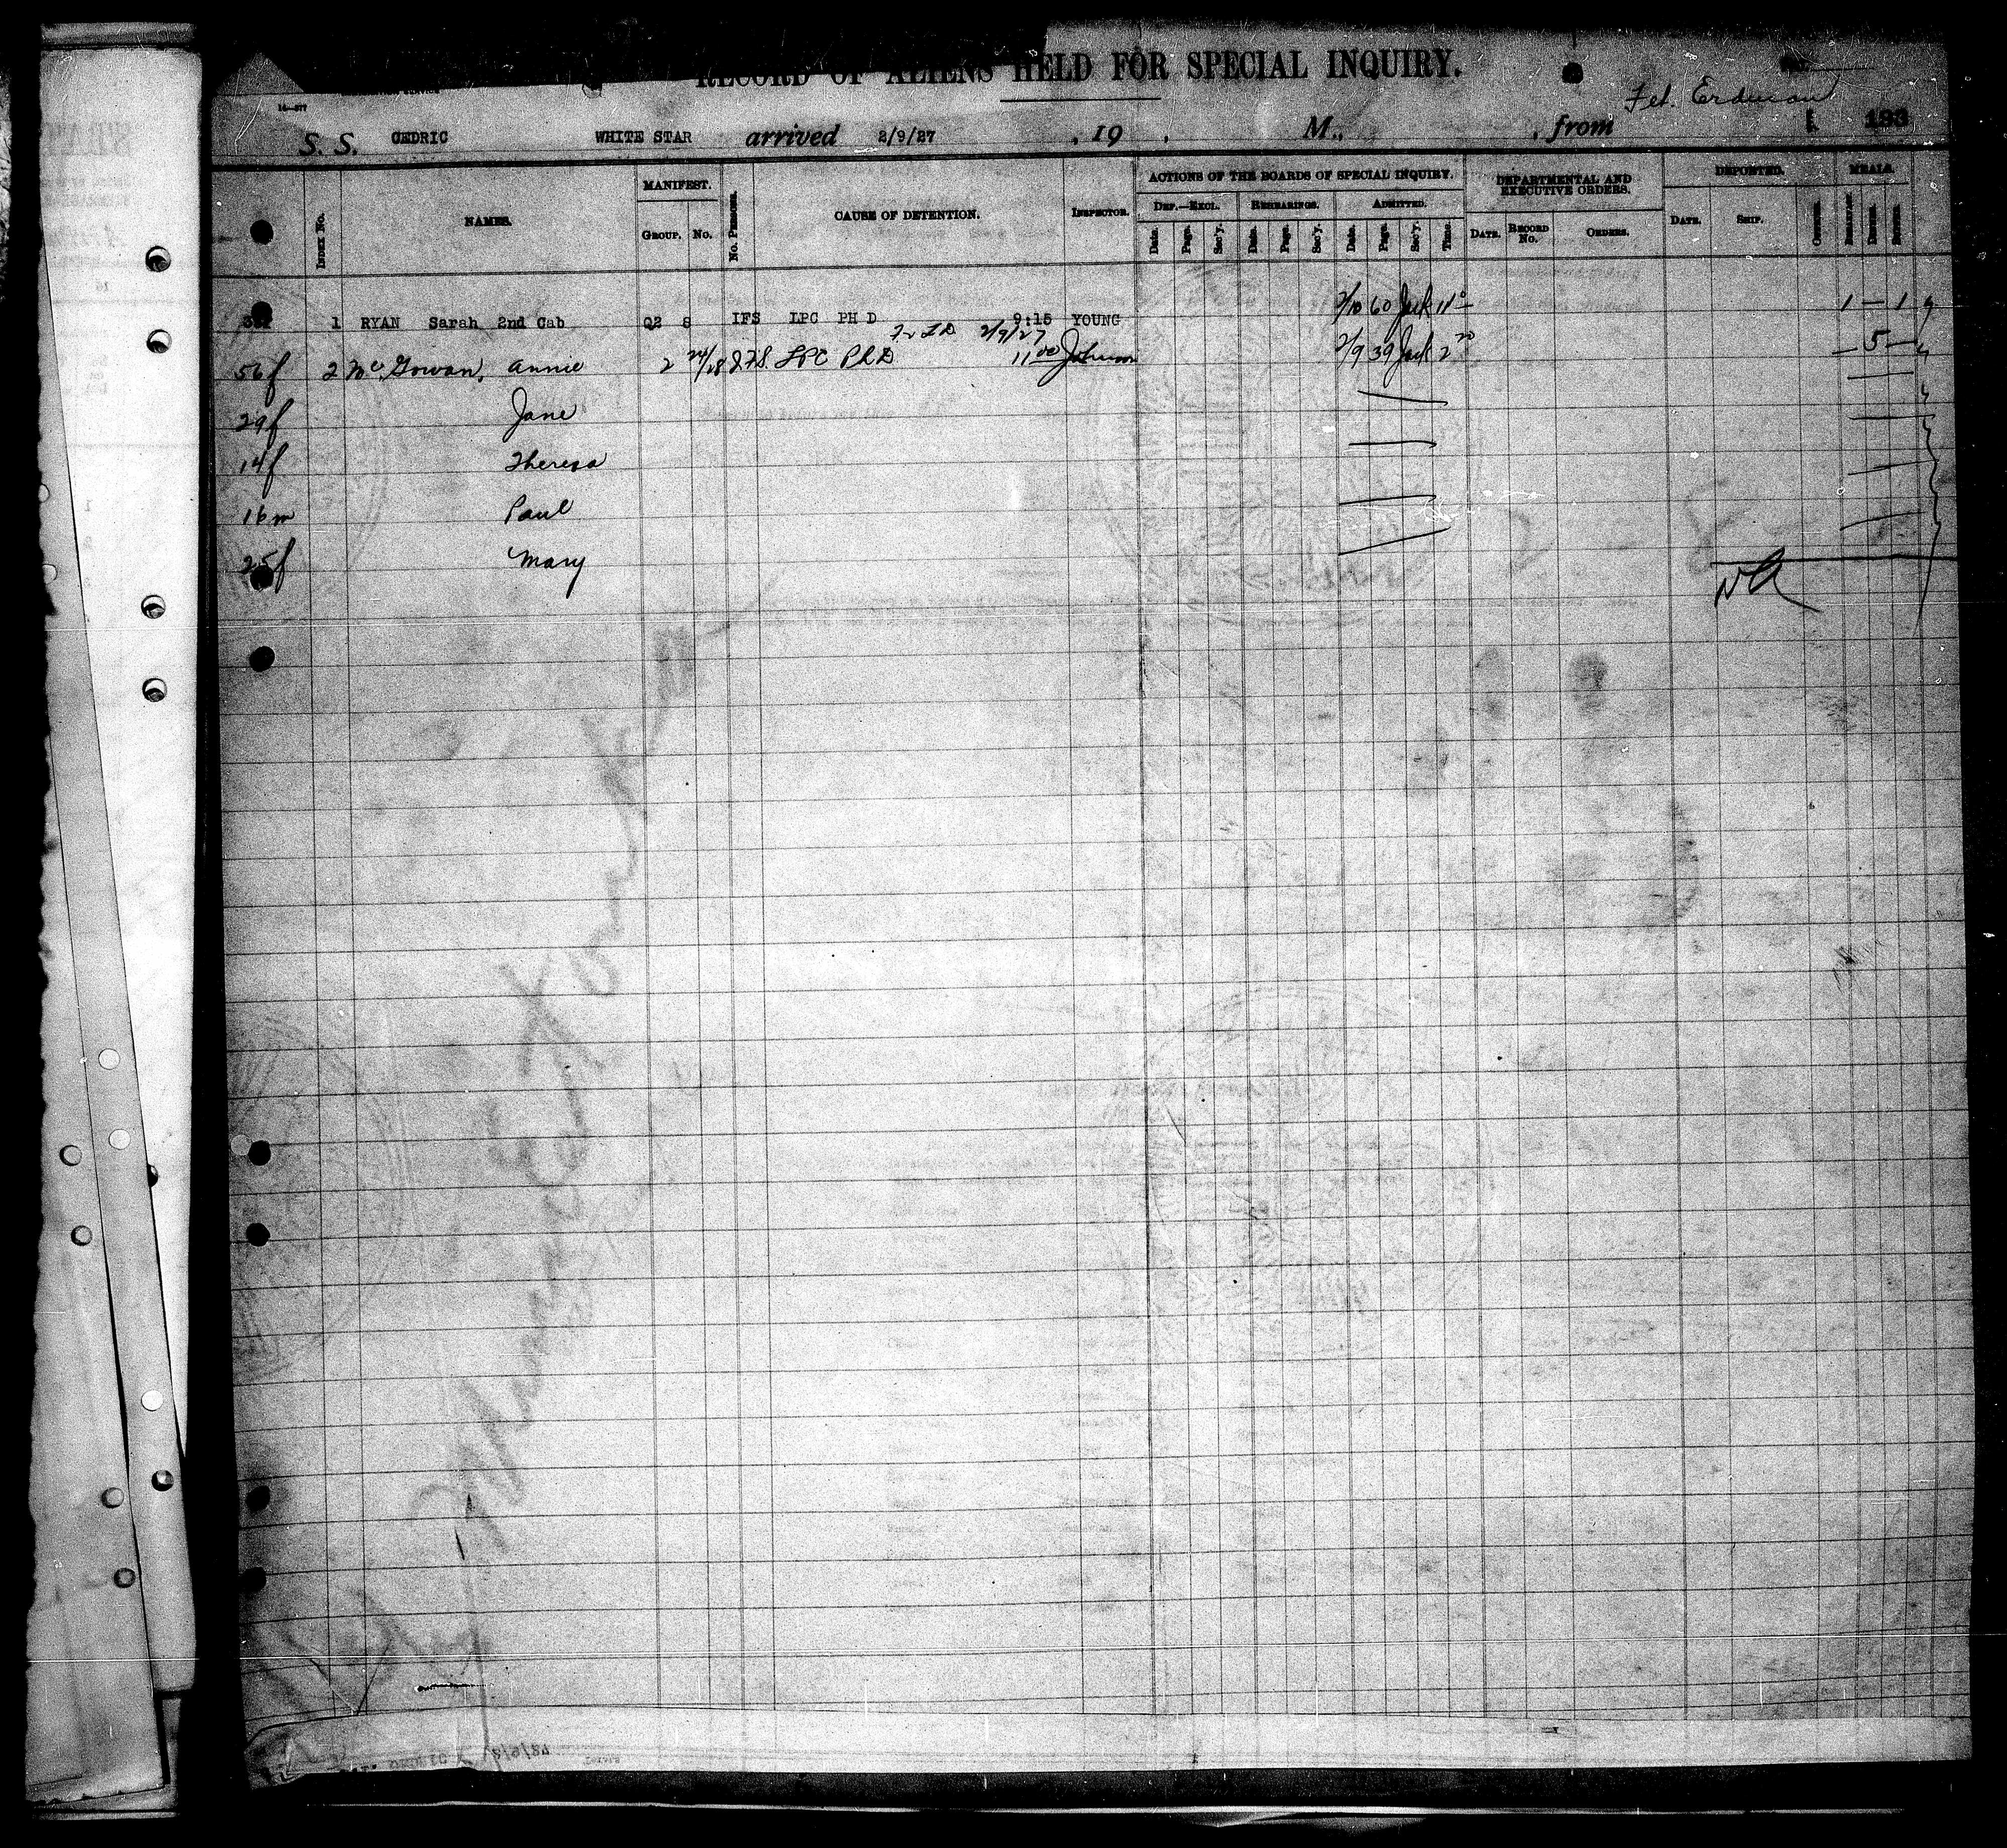 RECORD OF ALIENS HELD FOR SPECIAL INQUIRY.
14—577
S. S. CEDRIC WHITE STAR arrived 2/9/27 , 19 , M., , from 193
MANIFEST. ACTIONS OF THE BOARDS OF SPECIAL INQUIRY. DEPARTMENTAL AND EXECUTIVE ORDERS. DEPORTED. MEALS.
Index No. NAMES. Group. No. No. Persons. CAUSE OF DETENTION. Inspector. Def.—Excl. Rehearings. Admitted.
Date. Page. Sec'y. Date. Page. Sec'y. Date. Page. Sec'y. Time. Date. Record No. Orders. Date. Ship. Breakfast. Dinner. Supper.
1 RYAN Sarah 2nd Cab Q2 8 IFS LPC PH D 9:15 YOUNG 2/10 60 Jack 11 1 — 1
2/9/27
56f 2 McGowan, Annie 2 24/28 IFS. LPC Ph D 11 00 Johnson 2/9 39 Jack 2 20 — 5 —
29f Jane
14f Theresa
16m Paul
25f Mary